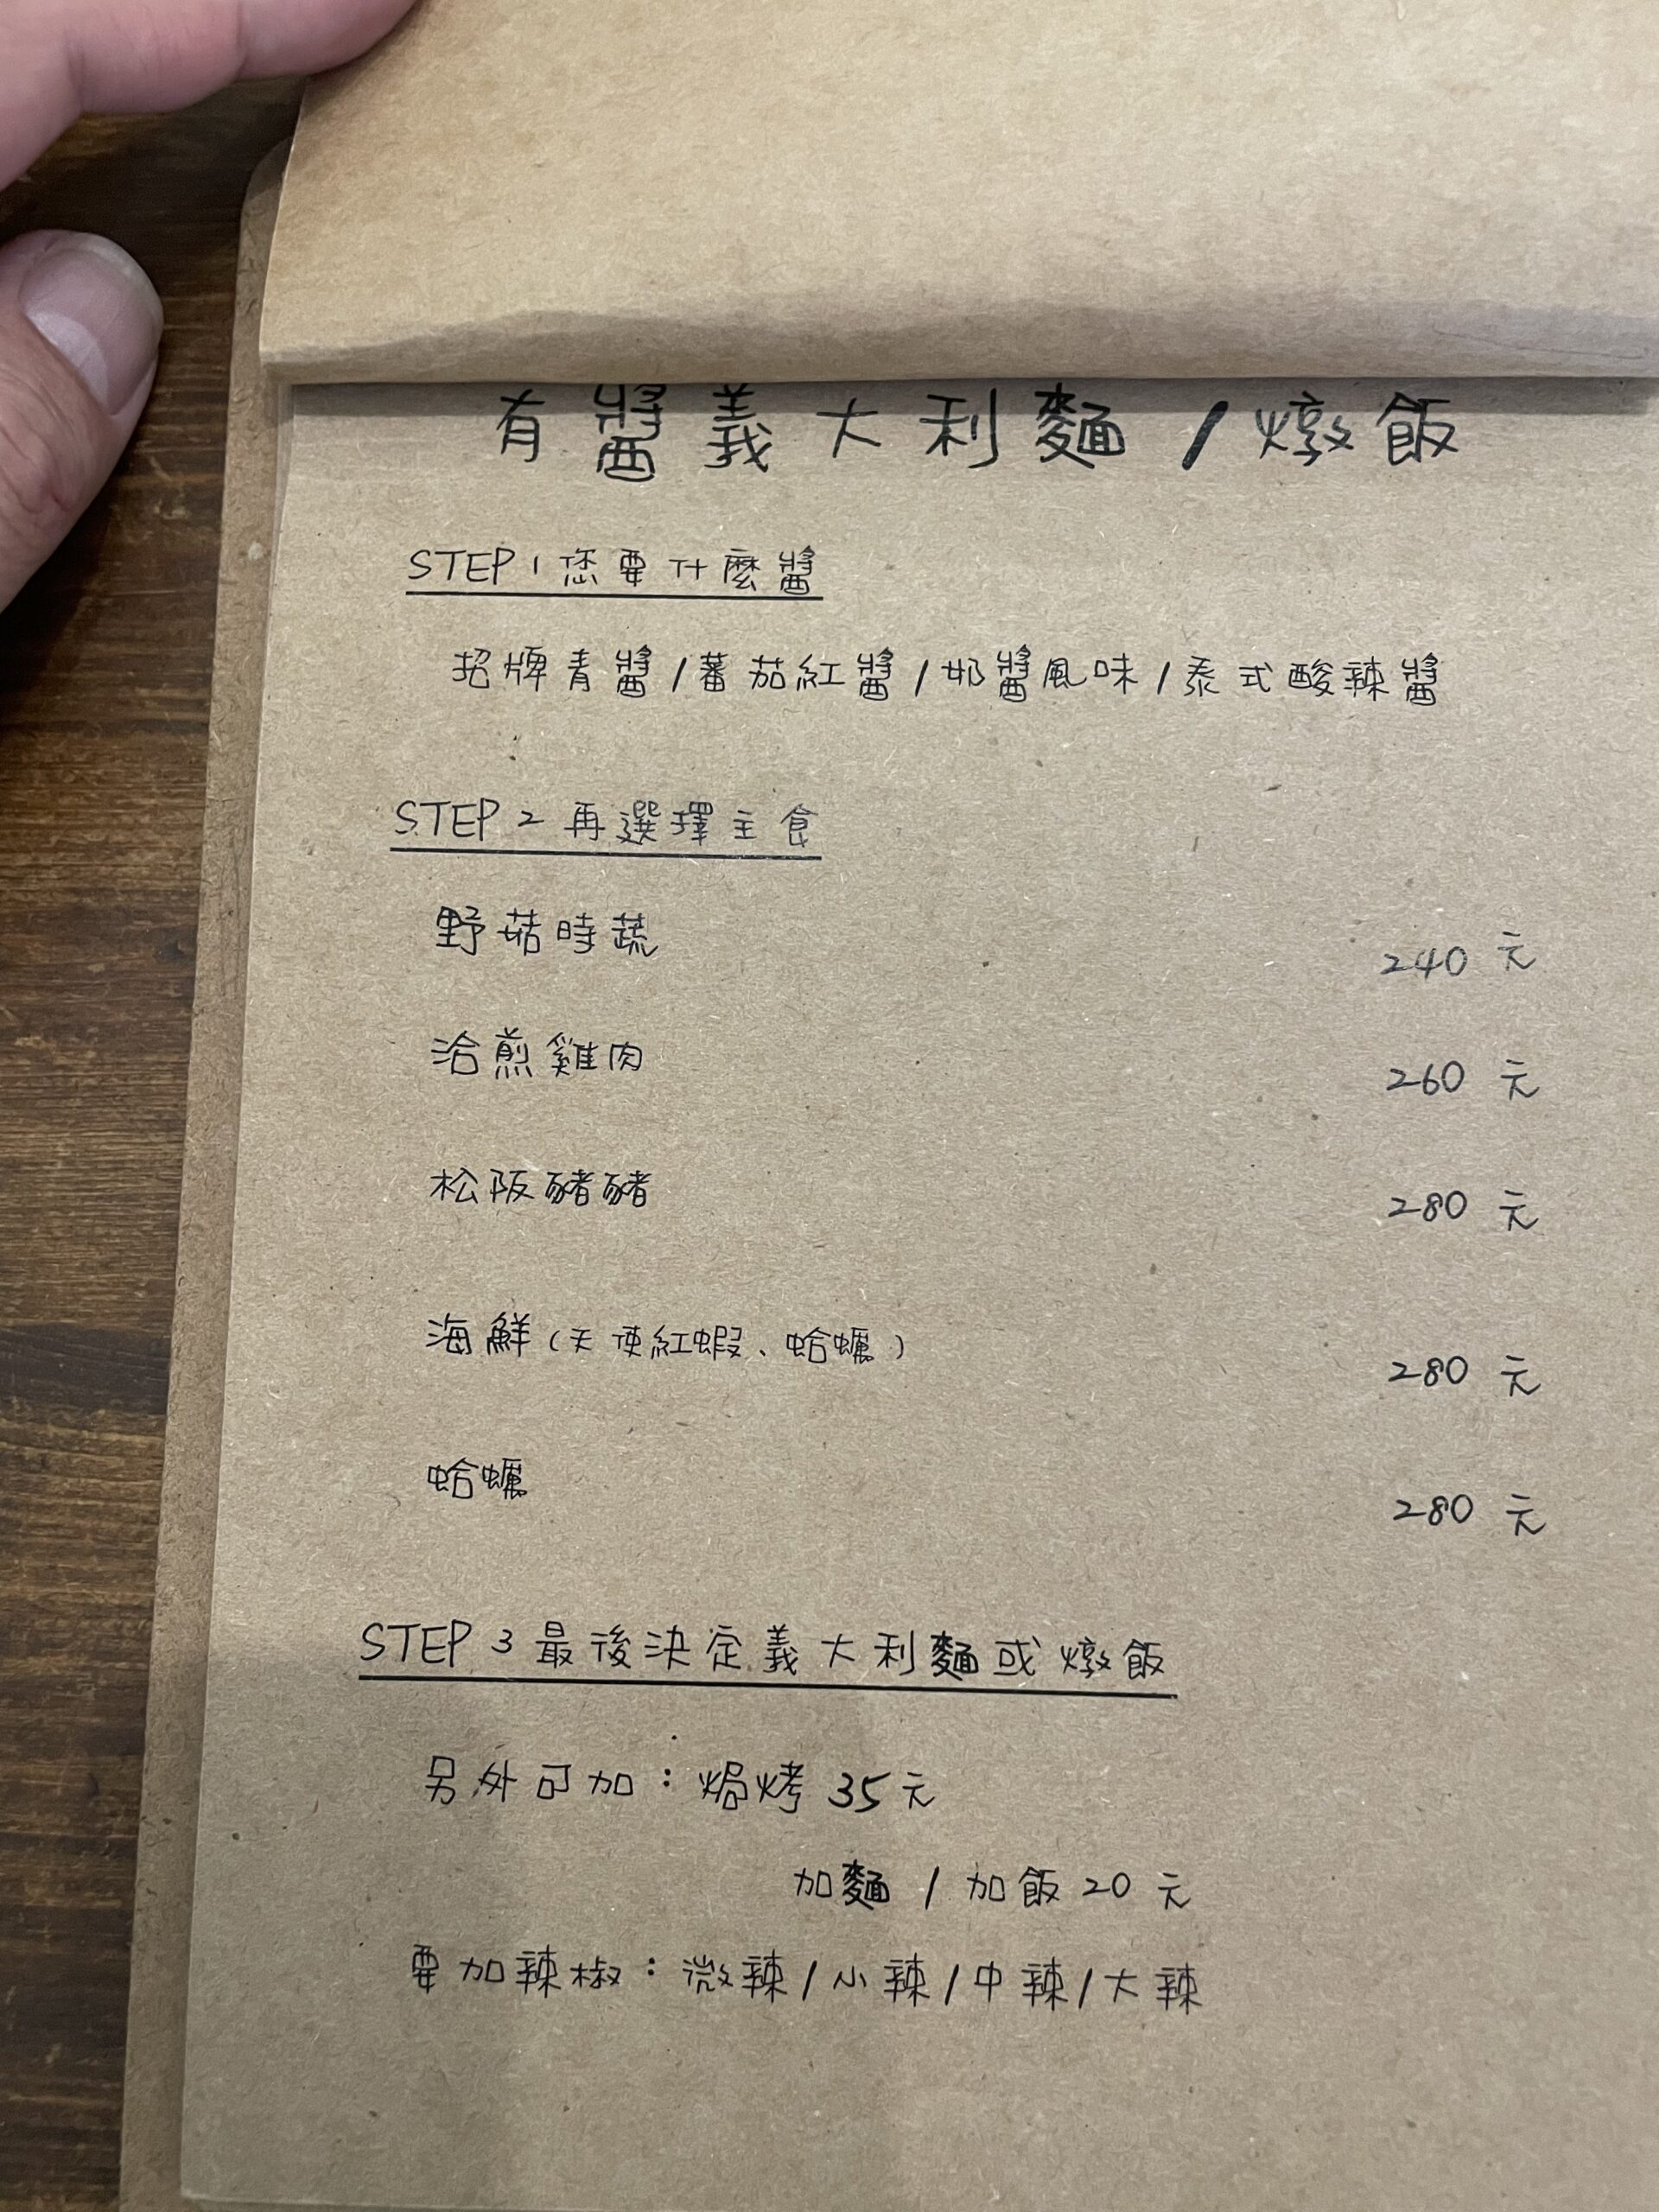 有醬義大利麵/燉飯
STEP 1 您要什麼醬
招牌青醬/蕃茄紅醬/奶醬風味/泰式酸辣醬
STEP 2 再選擇主食
野菇時蔬 240 元
洽煎雞肉 260 元
松阪豬豬 280 元
海鮮(天使紅蝦、蛤蠣) 280 元
蛤蠣 280 元
STEP 3 最後決定義大利麵或燉飯
另外可加：焗烤 35元
加麵 / 加飯 20 元
要加辣椒：微辣/小辣/中辣/大辣